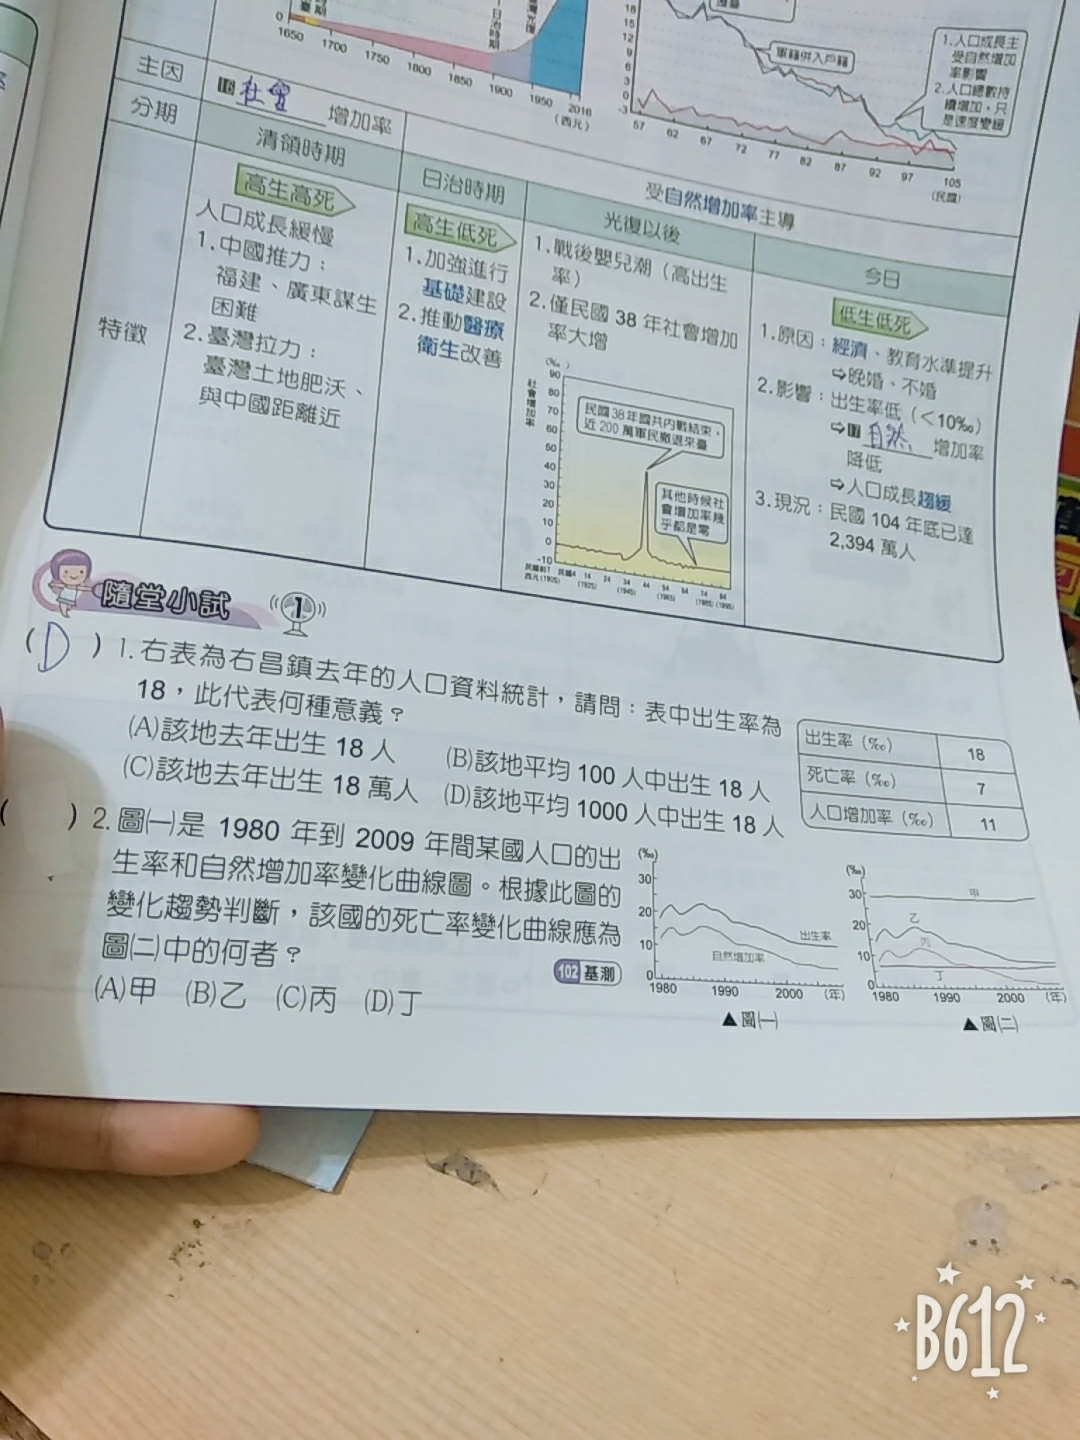 1650 1700 1750 1800 1850 1900 1950 2016
(西元)
日治時期
18
15
12
9
6
3
0
-3
57 62 67 72 77 82 87 92 97 105
(民國)
軍籍併入戶籍
1.人口成長主
受自然增加
率影響
2.人口總數持
續增加,只
是速度變緩
主因
16 社會 增加率
受自然增加率主導
分期
清領時期
日治時期
光復以後
今日
特徵
高生高死
人口成長緩慢
1.中國推力:
福建、廣東謀生
困難
2.臺灣拉力:
臺灣土地肥沃、
與中國距離近
高生低死
1.加強進行
基礎建設
2.推動醫療
衛生改善
1.戰後嬰兒潮(高出生
率)
2.僅民國 38 年社會增加
率大增
(‰)
社會增加率
90
80
70
60
50
40
30
20
10
0
-10
民國38年國共內戰結束,
近 200 萬軍民撤退來臺
其他時候社
會增加率幾
乎都是零
低生低死
1.原因:經濟、教育水準提升
⇨晚婚、不婚
2.影響:出生率低(<10‰)
⇨17 自然 增加率
降低
⇨人口成長趨緩
3.現況:民國 104 年底已達
2,394 萬人
隨堂小試 1
( D ) 1.右表為右昌鎮去年的人口資料統計,請問:表中出生率為
18,此代表何種意義?
(A)該地去年出生 18 人 (B)該地平均 100 人中出生 18 人
(C)該地去年出生 18 萬人 (D)該地平均 1000 人中出生 18 人
出生率(‰) 18
死亡率(‰) 7
人口增加率(‰) 11
( ) 2.圖㈠是 1980 年到 2009 年間某國人口的出
生率和自然增加率變化曲線圖。根據此圖的
變化趨勢判斷,該國的死亡率變化曲線應為
圖㈡中的何者?
102 基測
(A)甲 (B)乙 (C)丙 (D)丁
(‰)
30
20
10
0
出生率
自然增加率
1980 1990 2000 (年)
▲圖㈠
(‰)
30
20
10
0
甲
乙
丙
丁
1980 1990 2000 (年)
▲圖㈡
B612